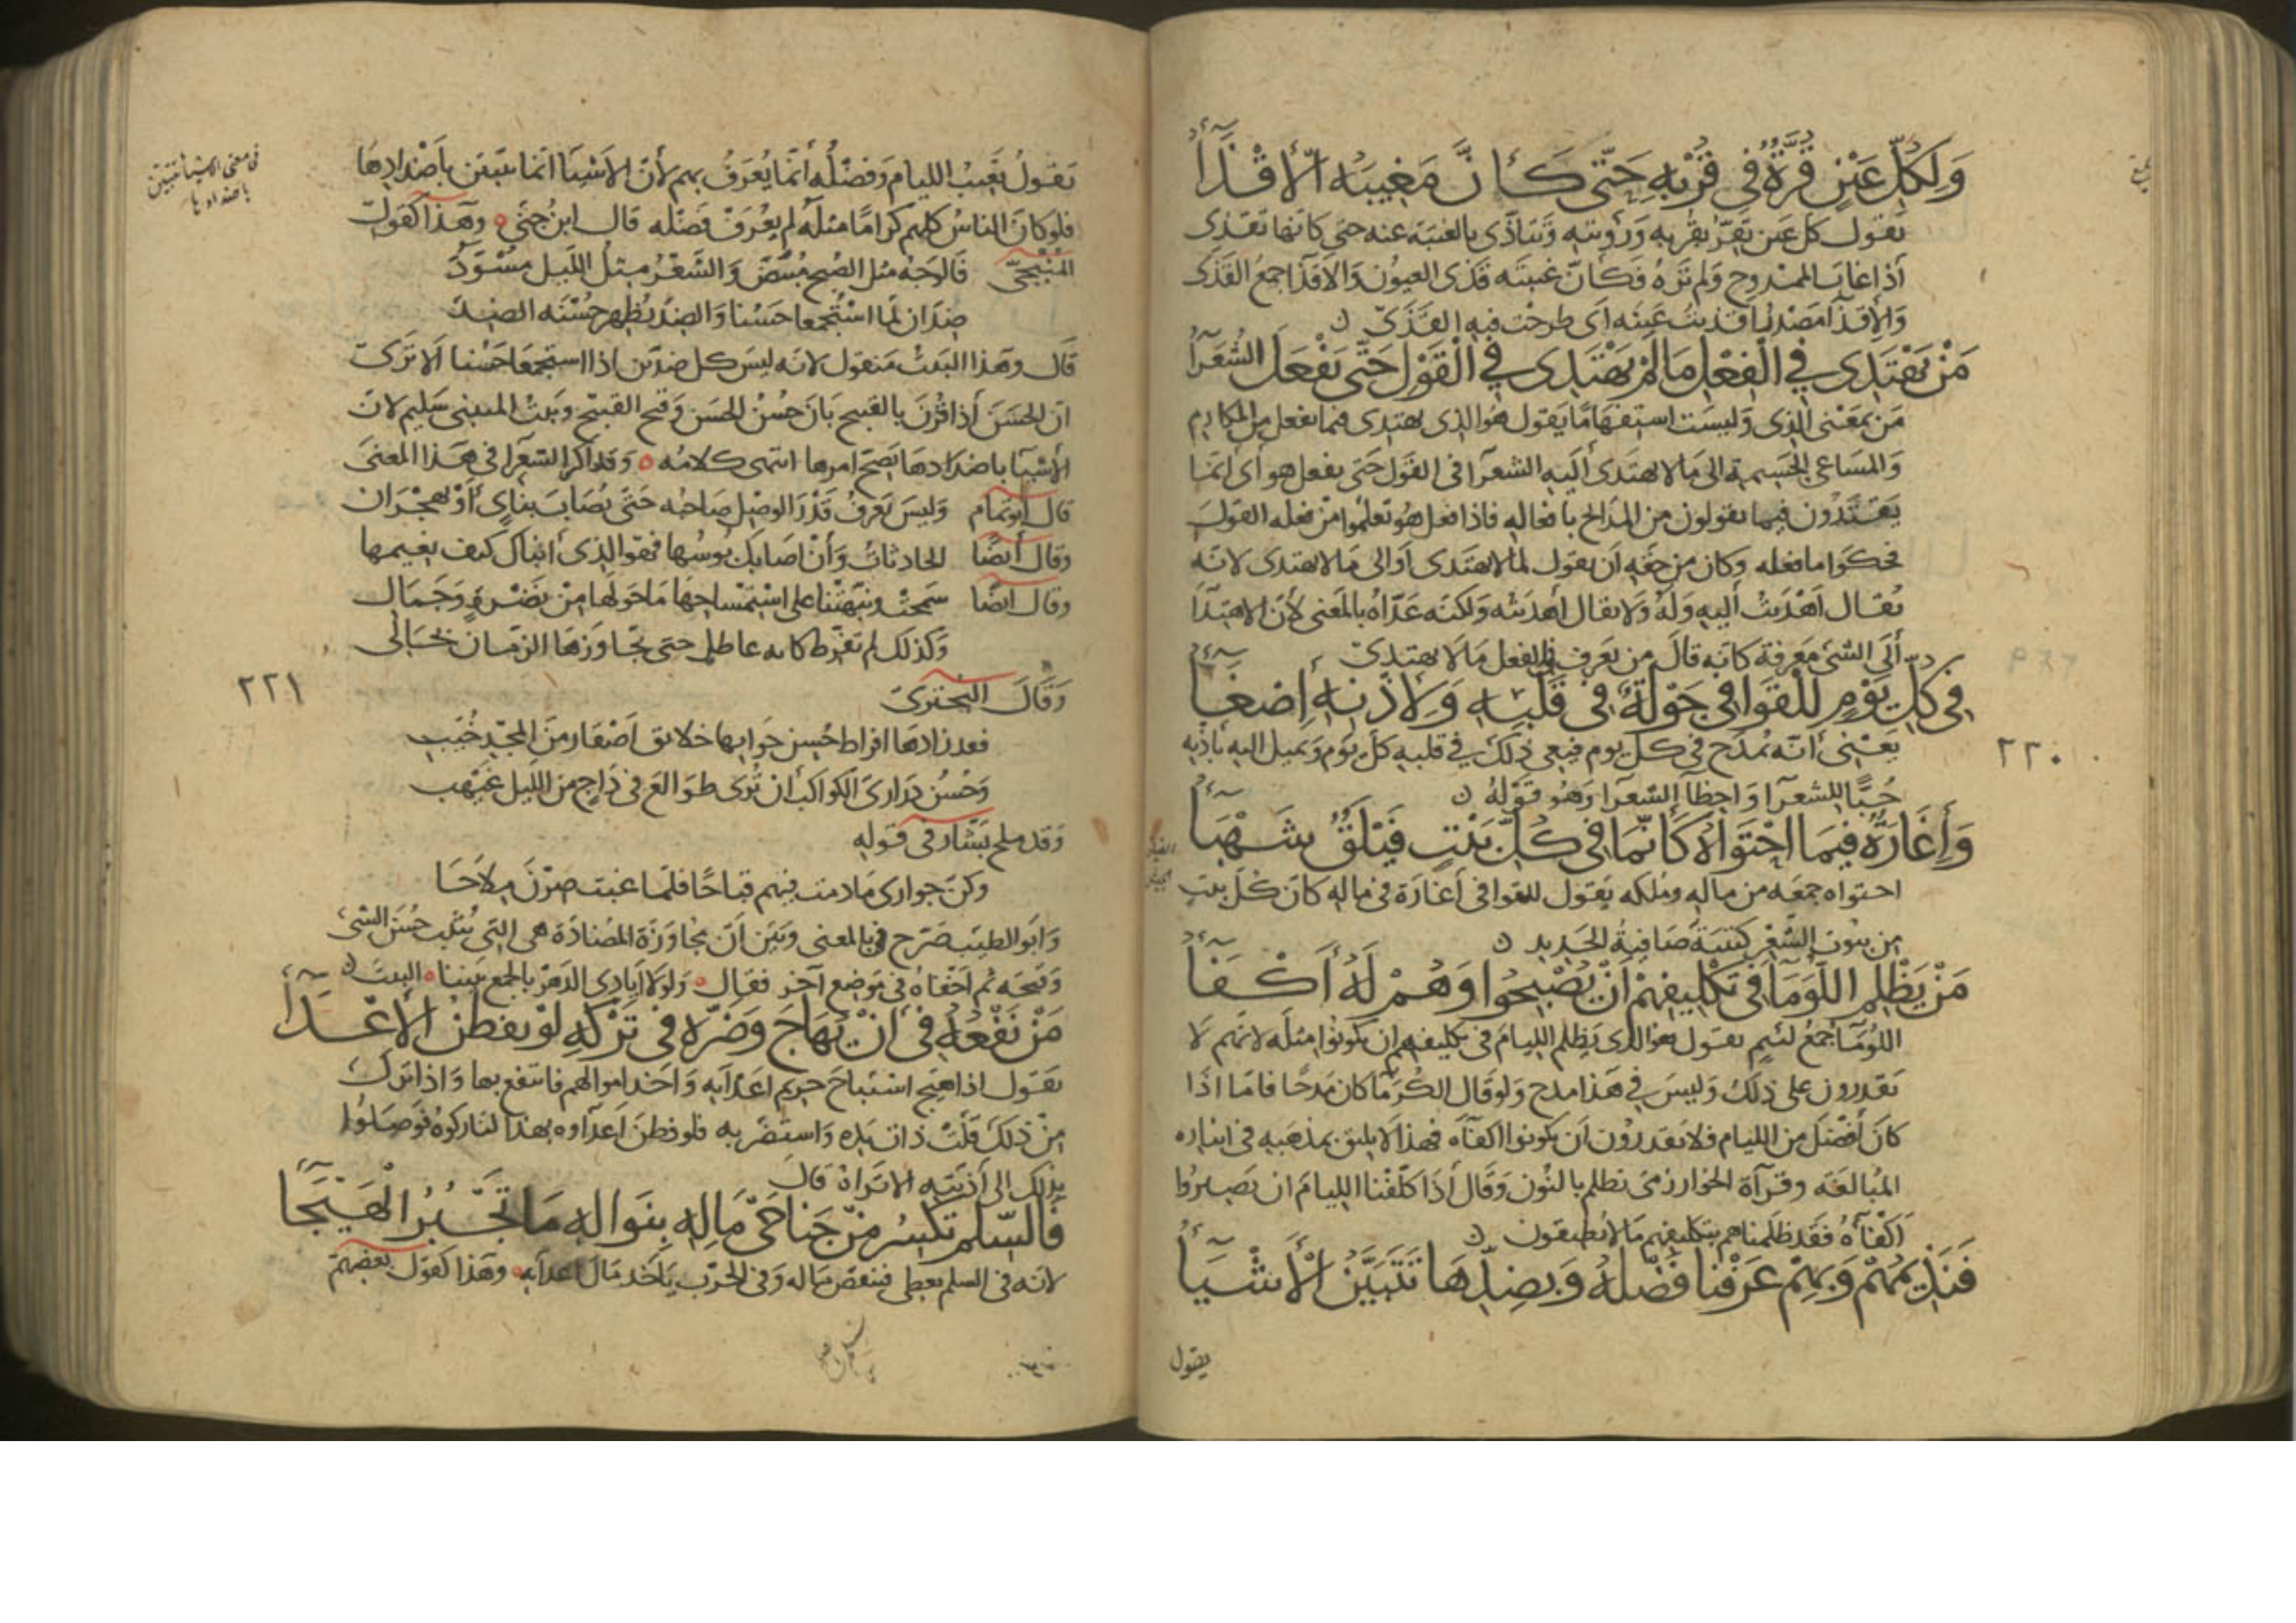 وَلِكُلِّ عَيْنٍ قُرَّةٌ فِي قُرْبِهِ حَتَّى كَأَنَّ مَغِيبَهُ الأَقْذَاءُ
يقول كل عين تقرّ بقربه ورؤيته وتتاذى بالغيبة عنه حتى كانها تقذى
اذا غاب الممدوح ولم تره فكانّ غيبته قذى العيون والاقذا جمع القذى
والاقذآ مصدر اقذيت عينه اى طرحت فيه القذى
مَنْ يَهْتَدِي فِي الْفِعْلِ مَا لَمْ يَهْتَدِي فِي الْقَوْلِ حَتَّى يَفْعَلَ الشُّعَرَآءُ
من بمعنى الذى وليست استفهاما يقول هو الذى يهتدى فيما يفعل من المكارم
والمساعى الجسيمة الى ما لا يهتدى اليه الشعرآ فى القول حتى يفعل هو اى انما
يقتدون فيما يقولون من المدايح بافعاله فاذا فعل هو تعلموا من فعله القول
فحكوا ما فعله وكان من حقه ان يقول لما لا يهتدى او الى ما لا يهتدى لانه
يقال اهديت اليه وله ولا يقال اهديته ولكنه عدّاه بالمعنى لان الاهتدآ
الى الشى معرفة كانه قال من يعرف فى الفعل ما لا يهتدى
فِي كُلِّ يَوْمٍ لِلْقَوَافِي جَوْلَةٌ فِي قَلْبِهِ وَلِأُذْنِهِ إِصْغَآءُ
يعنى انه يمدح فى كل يوم فيعى ذلك فى قلبه كل يوم ويميل اليه باذنه
٢٢٠
حبًّا للشعرآ واحظآ الشعرا وهو قوله
وَإِغَارَةٌ فِيمَا احْتَوَاهُ كَأَنَّمَا فِي كُلِّ بَيْتٍ فَيْلَقٌ شَهْبَآءُ
احتواه جمعه من ماله وملكه يقول للقوافى اغارة فى ماله كان كل بيت
من بيوت الشعر كتيبة صافية الحديد
مَنْ يَظْلِمِ اللُّوَمَآءَ فِي تَكْلِيفِهِمْ أَنْ يُصْبِحُوا وَهُمْ لَهُ أَكْفَآءُ
اللؤمآ جمع لئيم يقول هو الذى يظلم الليام فى تكليفهم ان يكونوا مثله لانهم لا
يقدرون على ذلك وليس فى هذا مدح ولو قال الكرمآ كان مدحا فاما اذا
كان افضل من الليام فلا يقدرون ان يكونوا اكفآه فهذا لا يليق بمذهبه فى ايثاره
المبالغه وقرآة الخوارزمى نظلم بالنون وقال اذا كلّفنا الليام ان يصيروا
اكفآه فقد ظلمناهم بتكليفهم ما لا يطيقون
وَنَذِيمُهُمْ وَبِهِمْ عَرَفْنَا فَضْلَهُ وَبِضِدِّهَا تَتَبَيَّنُ الأَشْيَآءُ
يقول
يقول نعيب الليام وفضله انما يعرف بهم لان الاشيا انما تتبين باضدادها
فى معنى الاشيا تتبين
باضدادها
فلو كان الناس كلهم كراما مثله لم يعرف فضله قال ابن جنى وهذا كقول
المنبجىّ فالوجه مثل الصبح مبيضّ والشعر مثل الليل مسودّ
ضدّان لما استجمعا حسنا والضد يظهر حسنه الضد
قال وهذا البيت منقول لانه ليس كل ضدّين اذا استجمعا حسنا الا ترى
ان الحسن اذا قرن بالقبيح بان حسن الحسن وقبح القبيح وبيت المتنبى سليم لان
الاشيآ باضدادها يصح امرها انتهى كلامه وقد اكثر الشعرآ فى هذا المعنى
قال ابو تمام وليس يعرف قدر الوصل صاحبه حتى يصاب بنأى او بهجران
وقال ايضا الحادثات وان اصابك بوسها فهو الذى انباك كيف نعيمها
وقال ايضا سمجت ونبهتنا على استسماجها ما حولها من نضرة وجمال
وكذلك لم تفرط كابه عاطل حتى يجاورها الزمان بحالى
وقال البحترى
٢٢١
فقد زادها افراط حسن جوارها خلائق اصفار من المجد خيّب
وحسن درارى الكواكب ان ترى طوالع فى داج من الليل غيهب
وقد ملح بشار فى قوله
وكن جوارى ما دمت فيهم قباحا فلما غبت صرن ملاحا
وابو الطيب صرح بالمعنى وبين ان مجاورة المضادة هى التى تثبت حسن الشى
وقبحه ثم اخفاه فى موضع آخر فقال ولولا ايادى الدهر بالجمع بيننا البيت
مَنْ نَفْعُهُ فِي أَنْ يُهَاجَ وَضَرُّهُ فِي تَرْكِهِ لَوْ يَفْطُنُ الأَعْدَآءُ
يقول اذا هيج استباح حريم اعدآيه واخذ اموالهم فانتفع بها واذا ترك
من ذلك قلّت ذات يده واستضر به فلو فطن اعدآوه بهذا لتاركوه فوصلوا
بذلك الى اذيته الا تراه قال
فَالسِّلْمُ تَكْسِرُ مِنْ جَنَاحَيْ مَالِهِ بِنَوَالِهِ مَا تَجْبُرُ الْهَيْجَآءُ
لانه فى السلم يعطى فينقص ماله وفى الحرب ياخذ مال اعدآيه وهذا كقول بعضهم